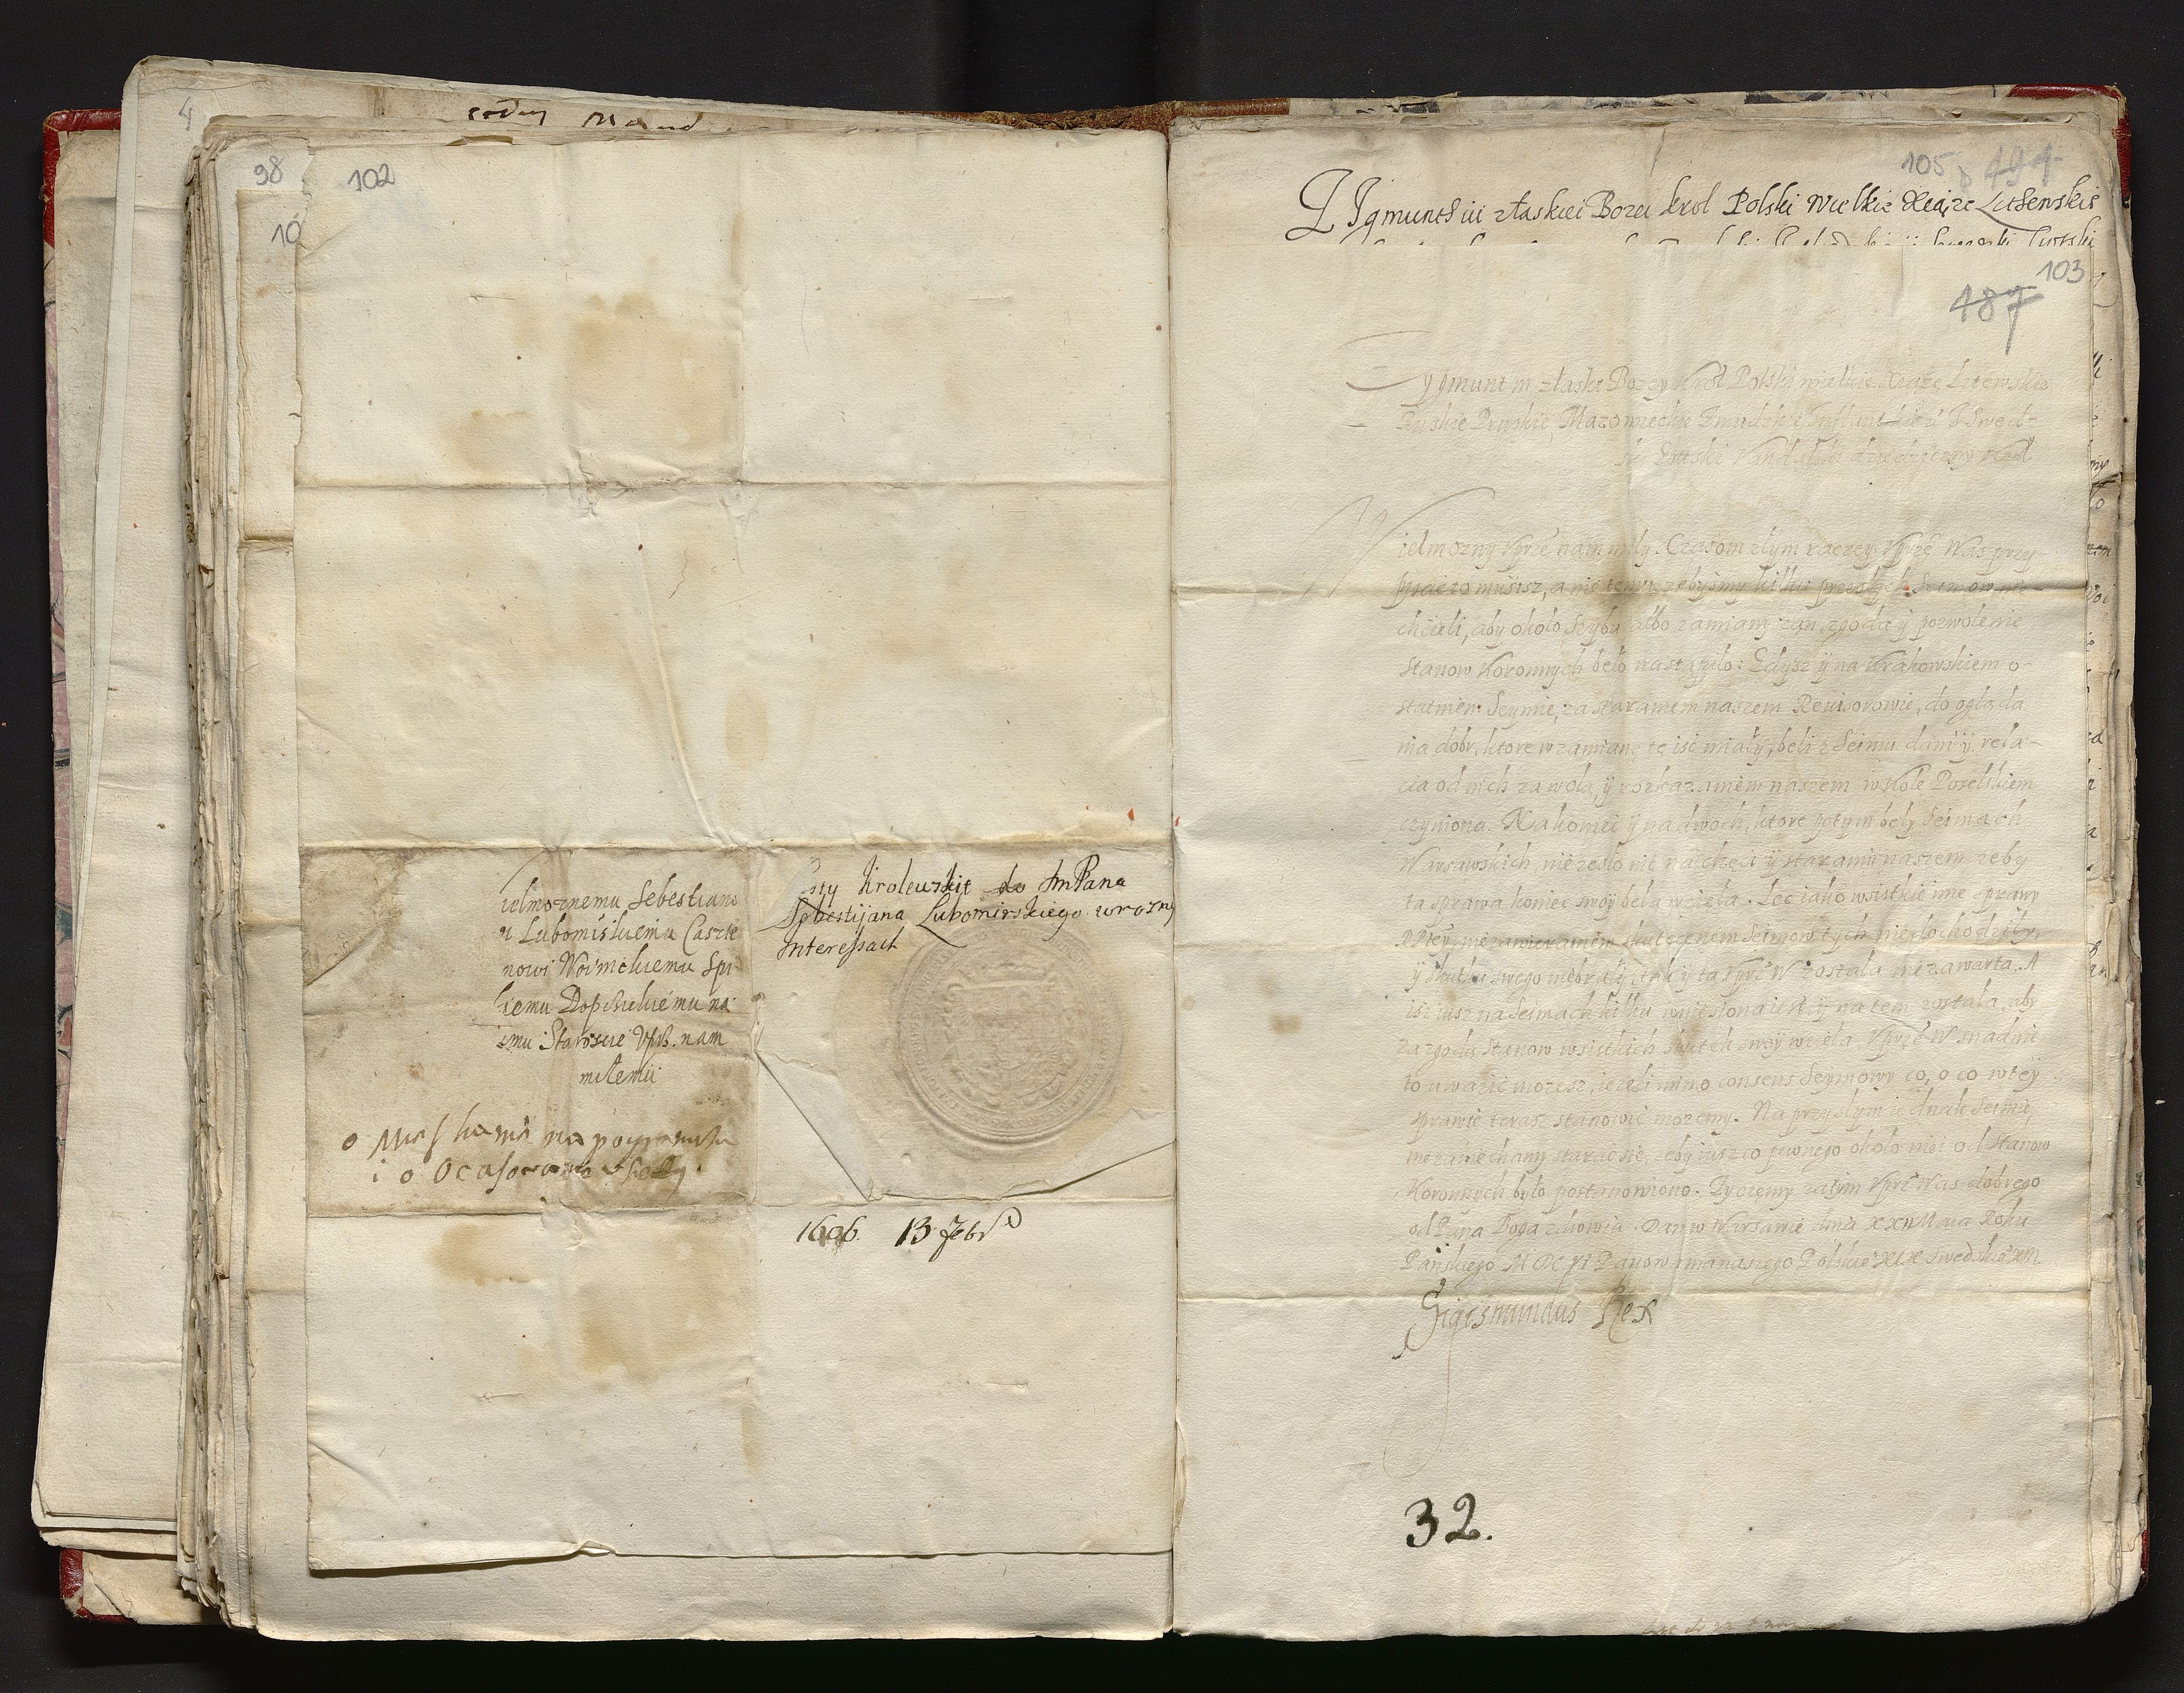 4
98
102
10
ielmoznemu Sebestiano
u Lubomiskiemu Caszte
nowi Woinickiemu Spi
skiemu Dopczickiemu na
emu Staroscie Uprz. nam
miłemu
o
na pograniczu
i o
sty Krolewskie do ImPana
Sebestijana Lubomirskiego wrozny
Interessach
1606. 13 Febr
105 494
ZIgmunth iii złaskiei Bozei krol Polski Wielkie Xiąze Lithewskie
103
487
Zygmunt III złaski Bozey Krol Polski wielkie Xiąże Litewskie
Ruskie Pruskie, Mazowieckie Zmudzkie Inflantskie ÿ Swedz
ski Gottski Vandalski dziedziczny Krol
Wielmozny Uprz nam miły. Czasom złym raczey Uprz Was przy-
pisać to musisz, a nie temu, zebysmy kilku przeszłych Seimow nie
chcieli, aby około Szybu albo zamiany zań, zgoda ÿ pozwolenie
Stanow Koronnych beło nastąpiło: Gdysz ÿ na Krakowskiem o-
statniem Seymie, za staraniem naszem Reuisorowie, do oględa
nia dobr, ktore w zamianę te iść miały, beli z Seimu dani ÿ rela-
cia od nich za wolą, ÿ rozkazaniem naszem w Kole Poselskiem
czyniona. Nakoniec ÿ na dwoch, ktore potym beły Seimach
Warsawskich nie zeszło nic na chęci ÿ staraniu naszem zeby
ta sprawa koniec swoÿ beła wzięła. Lec iako wsistkie inne sprawy
RPtey, niezawieraniem skutecznem Seimow tych nie dochodziły,
ÿ skutku swego niebrały, tak ÿ ta Uprz W została niezawarta. A
isz iusz na Seimach kilku wniesiona iest ÿ na tem została, aby
za zgodą Stanow wsistkich skutek swoÿ wzięła, Uprz W snadnie
to uwazić mozesz, iezeli mimo consens Seymowy co, o co w teÿ
sprawie teraz stanowić mozemy. Na przyszłym iednak Seimie,
niezaniechamy starać sie, zeby iusz co pewnego około niei od Stanow
Koronnych było postanowiono. Zyczemy zatym Uprz Was dobrego
od Pana Boga zdrowia. Dan w Warsawie dnia XXII Maia Roku
Pańskiego MDCVI Panowania naszego Polskie° XIX Swedskie° XIII.
Sigismundus Rex
32.